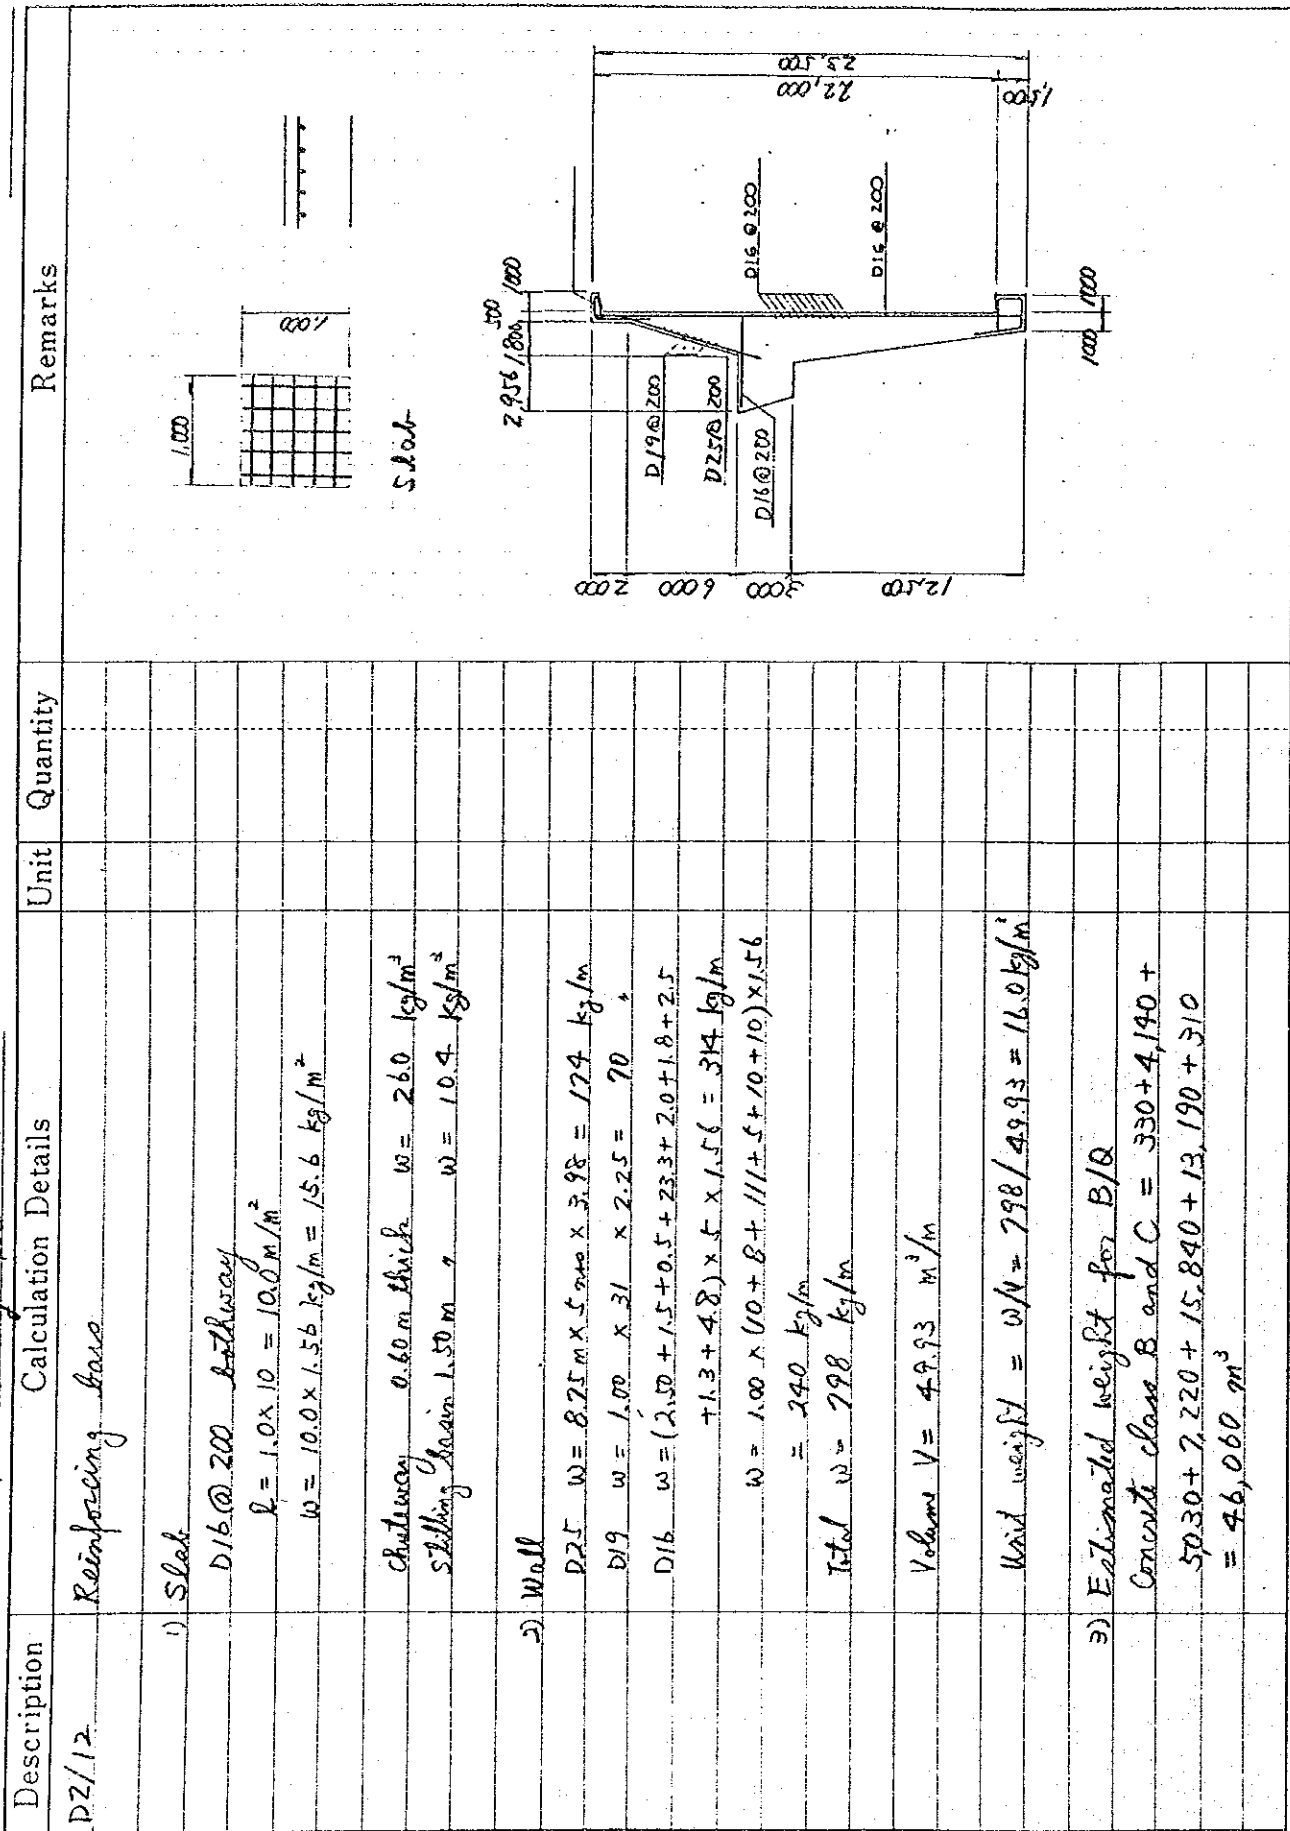 Description Calculation Details Unit Quantity Remarks
D2/12 Reinforcing bars
1) Slab
D16 @ 200 bothway
l = 1.0 × 10 = 10.0 m/m²
w = 10.0 × 1.56 kg/m = 15.6 kg/m²
Chuteway 0.60 m thick w = 26.0 kg/m³
Stilling basin 1.50 m 〃 w = 10.4 kg/m³
2) Wall
D25 w = 8.75 m × 5 nos × 3.98 = 174 kg/m
D19 w = 1.00 × 31 × 2.25 = 70 〃
D16 w = (2.50 + 1.5 + 0.5 + 23.3 + 2.0 + 1.8 + 2.5
+ 1.3 + 4.8) × 5 × 1.56 = 314 kg/m
w = 1.00 × (10 + 8 + 111 + 5 + 10 + 10) × 1.56
= 240 kg/m
Total w = 798 kg/m
Volume V = 49.93 m³/m
Unit weight = W/V = 798/49.93 = 16.0 kg/m³
3) Estimated weight for B/Q
Concrete class B and C = 330 + 4,140 +
5,030 + 7,220 + 15,840 + 13,190 + 310
= 46,060 m³
1,000
1,000
Slab
2,956 1,800 500 1,000
D19 @ 200
D25 @ 200
D16 @ 200
D16 @ 200
D16 @ 200
2,000
6,000
3,000
12,500
23,500
22,000
1,500
1,000 1,000